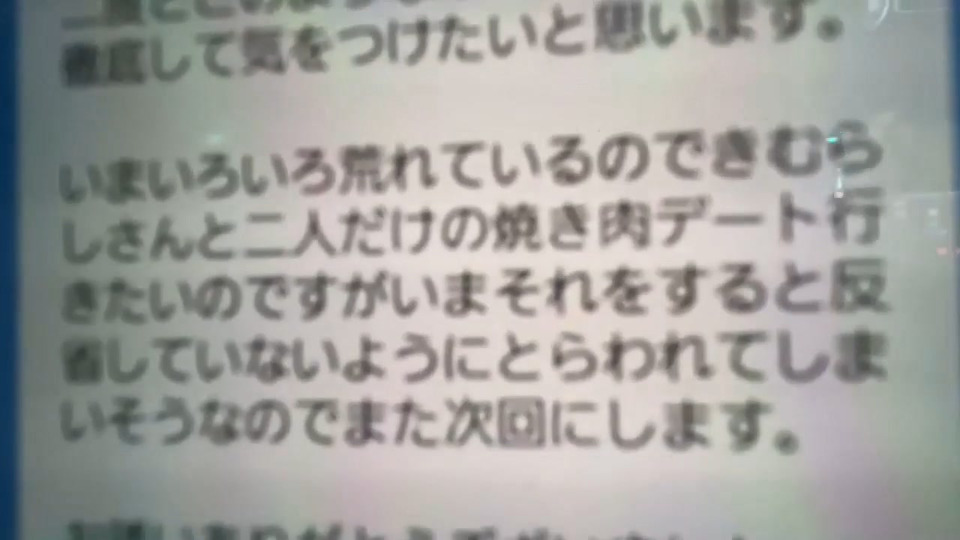 徹底して気をつけたいと思います。
いまいろいろ荒れているのできむら
しさんと二人だけの焼き肉デート行
きたいのですがいまそれをすると反
省していないようにとらわれてしま
いそうなのでまた次回にします。